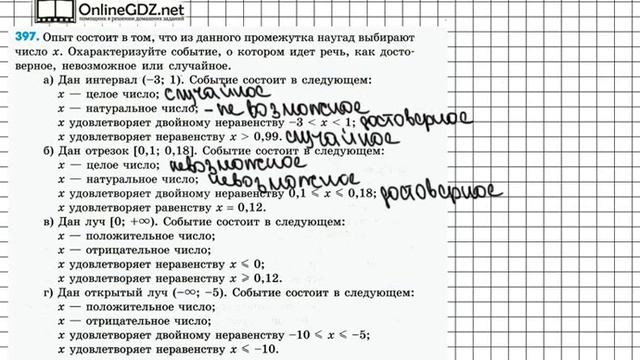 OnlineGDZ.net
помощник в решении домашних заданий
397. Опыт состоит в том, что из данного промежутка наугад выбирают
число x. Охарактеризуйте событие, о котором идет речь, как досто-
верное, невозможное или случайное.
а) Дан интервал (−3; 1). Событие состоит в следующем:
x — целое число; случайное
x — натуральное число; - невозможное
x удовлетворяет двойному неравенству −3 < x < 1; достоверное
x удовлетворяет неравенству x > 0,99. случайное
б) Дан отрезок [0,1; 0,18]. Событие состоит в следующем:
x — целое число; невозможное
x — натуральное число; невозможное
x удовлетворяет двойному неравенству 0,1 ⩽ x ⩽ 0,18; достоверное
x удовлетворяет равенству x = 0,12.
в) Дан луч [0; +∞). Событие состоит в следующем:
x — положительное число;
x — отрицательное число;
x удовлетворяет неравенству x ⩽ 0;
x удовлетворяет неравенству x ⩾ 0,12.
г) Дан открытый луч (−∞; −5). Событие состоит в следующем:
x — положительное число;
x — отрицательное число;
x удовлетворяет двойному неравенству −10 ⩽ x ⩽ −5;
x удовлетворяет неравенству x ⩽ −10.